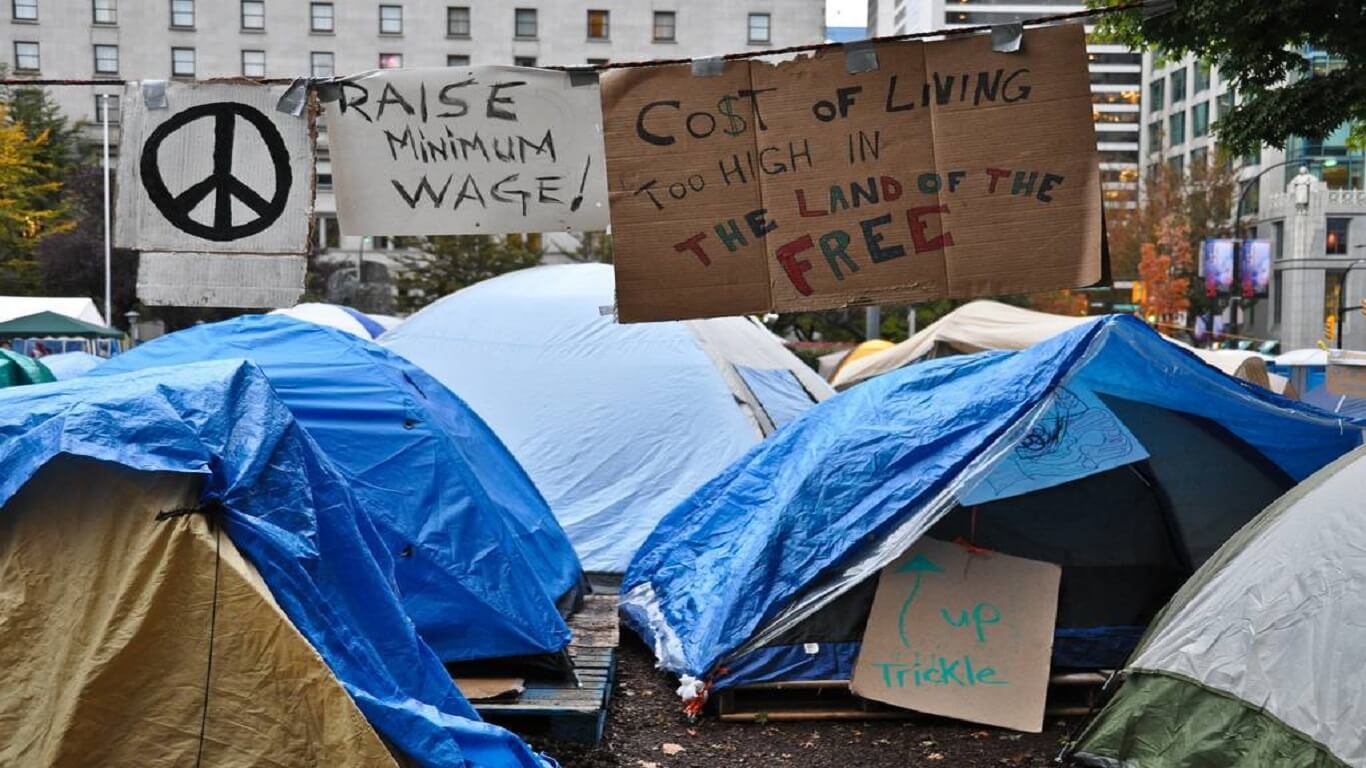 RAISE
MINIMUM
WAGE!
CO$T OF LIVING
TOO HIGH IN
THE LAND OF THE
FREE
up
Trickle